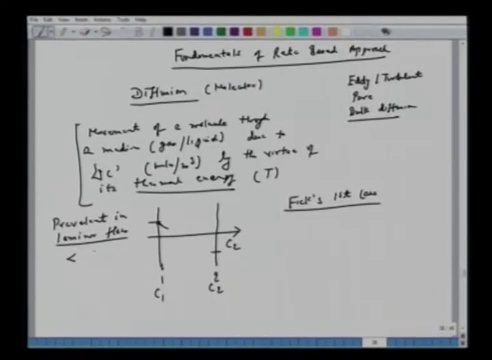 Fundamentals of Rate Based Approach
Diffusion (Molecular)
Eddy / Turbulent
Pore
Bulk diffusion
Movement of a molecule through
a medium (gas/liquid) due to
'ΔC' (mole/m3) by the virtue of
its thermal energy (T)
Fick's 1st Law
Prevalent in
laminar flow
<
C2
1
2
C1
C2